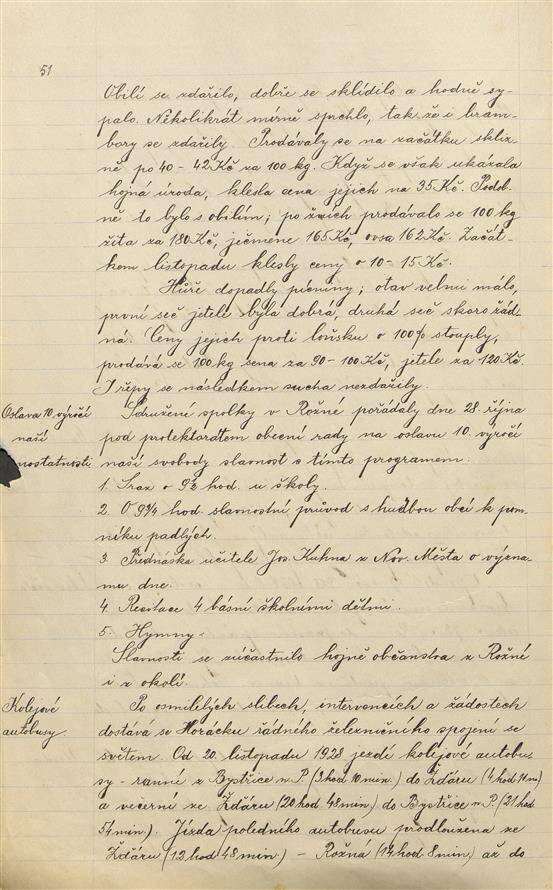 51
Obilí se zdařilo, dobře se sklidilo a hodně sy-
palo. Několikrát mírně sprchlo, tak že i bram-
bory se zdařily. Prodávaly se na začátku skliz-
ně po 40 - 42 Kč za 100 kg. Když se však ukazala
hojná úroda, klesla cena jejich na 35 Kč. Podob-
ně to bylo s obilím; po žních prodávalo se 100 kg
žita za 180 Kč, ječmene 165 Kč, ovsa 162 Kč. Začát-
kem listopadu klesly ceny o 10 - 15 Kč.
Hůře dopadly pícniny; otav velmi málo,
první seč jetele byla dobrá, druhá seč skoro žád-
ná. Ceny jejich proti loňsku o 100% stouply,
prodává se 100 kg sena za 90 - 100 Kč, jetele za 120 Kč.
I řepy se následkem sucha nezdařily.
Oslava 10. výročí
naší
samostatnosti
Sdružené spolky v Rožné pořádaly dne 28. října
pod protektorátem obecní rady na oslavu 10. výročí
naší svobody slavnost s tímto programem:
1. Sraz o 9½ hod. u školy.
2. O 9¾ hod. slavnostní průvod s hudbou obcí k pom-
níku padlých.
3. Přednáška učitele Jos. Kuhna z Nov. Města o význa-
mu dne.
4. Recitace 4 básní školními dětmi.
5. Hymny.
Slavnosti se zúčastnilo hojně občanstva z Rožné
i z okolí.
Kolejové
autobusy.
Po osmiletých slibech, intervencích a žádostech
dostává se Horácku řádného železničního spojení se
světem. Od 20. listopadu 1928 jezdí kolejové autobu-
sy - ranní z Bystřice n. P. (3 hod 10 min.) do Žďáru (4 hod 11 m)
a večerní ze Žďáru (20 hod 48 min) do Bystřice n. P. (21 hod
54 min). Jízda poledního autobusu prodloužena ze
Žďáru (12 hod 48 min) - Rožná (14 hod 8 min) až do